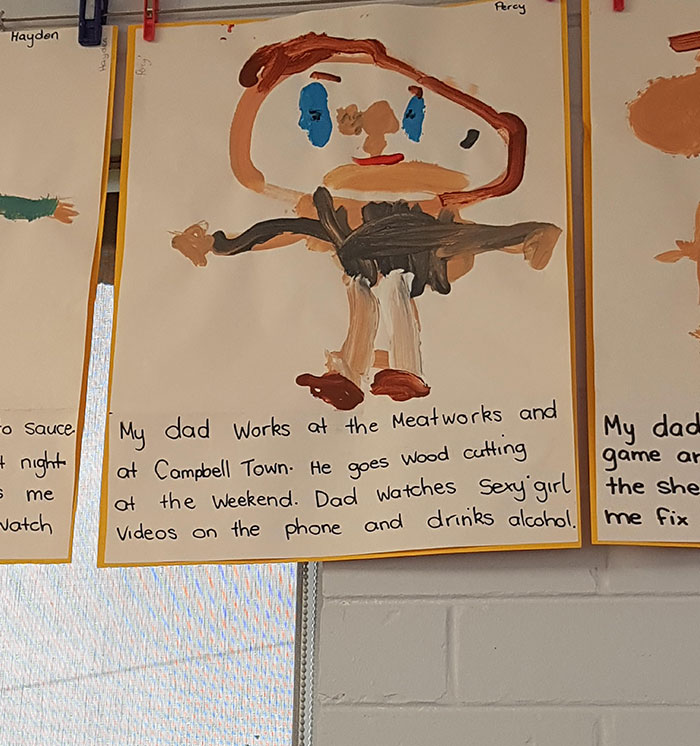 Hayden
Hayden
Percy
to sauce.
night
me
watch
My dad works at the Meatworks and
at Campbell Town. He goes wood cutting
at the weekend. Dad watches sexy girl
videos on the phone and drinks alcohol.
My dad
game
the
me fix